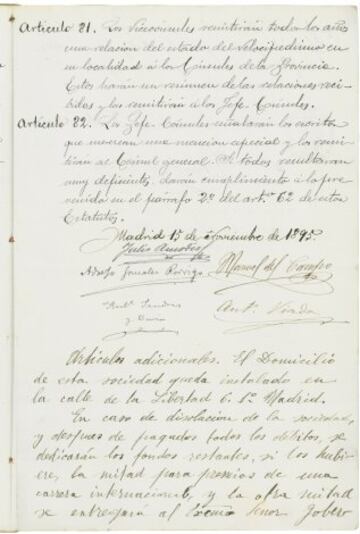 Artículo 81. Los Vicecónsules remitirán todos los años
una relación del estado del Velocipedismo en
su localidad á los Cónsules de la Provincia.
Estos harán un resumen de las relaciones reci-
bidas y los remitirán á los Jefe-Cónsules.
Artículo 82. Los Jefe-Cónsules señalarán los escritos
que merezcan una mención especial y los remi-
tirán al Cónsul general. Si todos resultaran
muy deficientes, darán cumplimiento á lo pre-
venido en el párrafo 2º del artº 62 de estos
Estatutos.
Madrid 15 de Noviembre de 1895.
Julio
Adolfo Gonzalez Manuel del Campo
Antº
Artículos adicionales. El Domicilio
de esta sociedad queda instalado en
la calle de la Libertad 6. 1º Madrid.
En caso de disolución de la sociedad,
y despues de pagados todos los débitos, se
dedicarán los fondos restantes, si los hubie-
re, la mitad para premios de una
carrera internacional, y la otra mitad
se entregará al Excmo Señor Gober